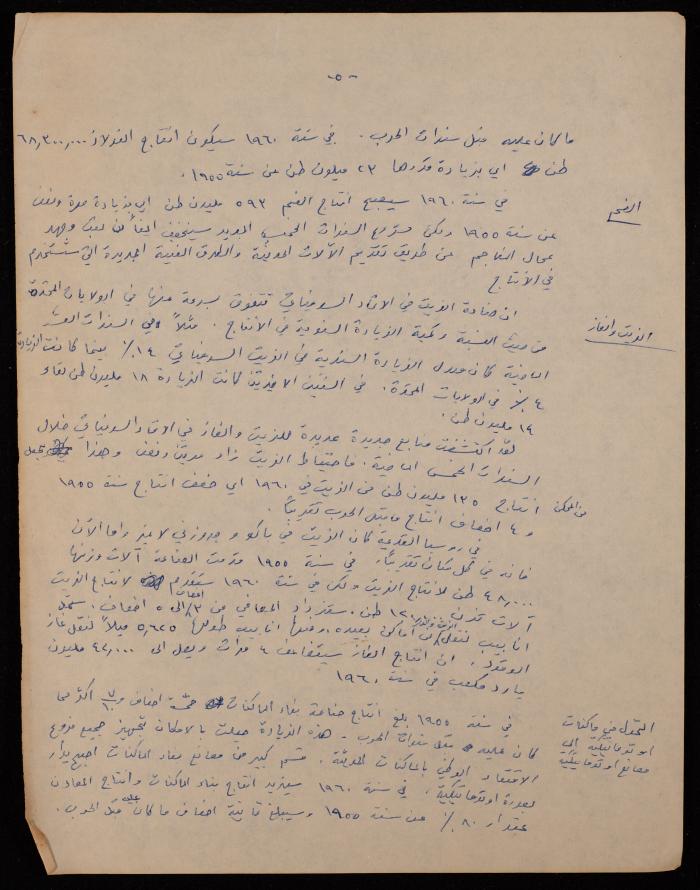 - ٥ -
ما كان عليه قبل سنوات الحرب. في سنة ١٩٦٠ سيكون انتاج الفولاذ ٦٨,٣٠٠,٠٠٠
طن اي بزيادة قدرها ٢٣ مليون طن عن سنة ١٩٥٥.
الفحم
في سنة ١٩٦٠ سيصبح انتاج الفحم ٥٩٣ مليون طن اي بزيادة مرة ونصف
عن سنة ١٩٥٥ ولكن مشروع السنوات الخمس الجديد سيخفف ايضاً من تعب وجهد
عمال المناجم عن طريق تقديم الآلات الحديثة والطرق الفنية الجديدة التي ستستخدم
في الانتاج
الزيت والغاز
ان صناعة الزيت في الاتحاد السوفياتي تتفوق بسرعة منها في الولايات المتحدة
من حيث النسبة وكمية الزيادة السنوية في الانتاج. مثلاً في السنوات العشر
الماضية كان معدل الزيادة السنوية في الزيت السوفياتي ١٤٪ بينما كانت الزيادة
٤٪ في الولايات المتحدة. في السنتين الاخيرتين كانت الزيادة ١٨ مليون طن لقاء
١٤ مليون طن.
لقد اكتشفت منابع جديدة عديدة للزيت والغاز في الاتحاد السوفياتي خلال
السنوات الخمس الماضية. فاحتياط الزيت زاد مرتين ونصف وهذا يجعل
من الممكن انتاج ١٣٥ مليون طن من الزيت في ١٩٦٠ اي ضعف انتاج سنة ١٩٥٥
و ٤ اضعاف انتاج ما قبل الحرب تقريباً.
في روسيا القديمة كان الزيت في باكو و جروزني لا غير واما الآن
فانه في كل مكان تقريباً. في سنة ١٩٥٥ قدمت الصناعة آلات وزنها
٤٨,٠٠٠ طن لانتاج الزيت ولكن في سنة ١٩٦٠ ستقدم لانتاج الزيت
آلات تزن ١٢٠,٠٠٠ طن. ستزداد المصافي من ٣٫٨ اضعاف الى ٥ اضعاف. ستمتد
انابيب لنقل الزيت من اماكن بعيدة ومنها انابيب طولها ٥,٦٢٥ ميلاً لنقل غاز
الوقود. ان انتاج الغاز سيتضاعف ٤ مرات ويصل الى ٤٢,٠٠٠ مليون
يارد مكعب في سنة ١٩٦٠
التحول من ماكنات
اوتوماتيكية الى
مصانع اوتوماتيكية
في سنة ١٩٥٥ بلغ انتاج صناعة بناء الماكنات خمسة اضعاف و ٧/١٠ اكثر مما
كان عليه قبل سنوات الحرب. هذه الزيادة جعلت بالامكان تجهيز جميع فروع
الاقتصاد الوطني بالماكنات الحديثة. قسم كبير من مصانع بناء الماكنات اصبح يدار
بصورة اوتوماتيكية. في سنة ١٩٦٠ سيزيد انتاج بناء الماكنات وانتاج المعادن
بمقدار ٨٠٪ عن سنة ١٩٥٥ وسيبلغ ثمانية اضعاف ما كان عليه قبل الحرب.